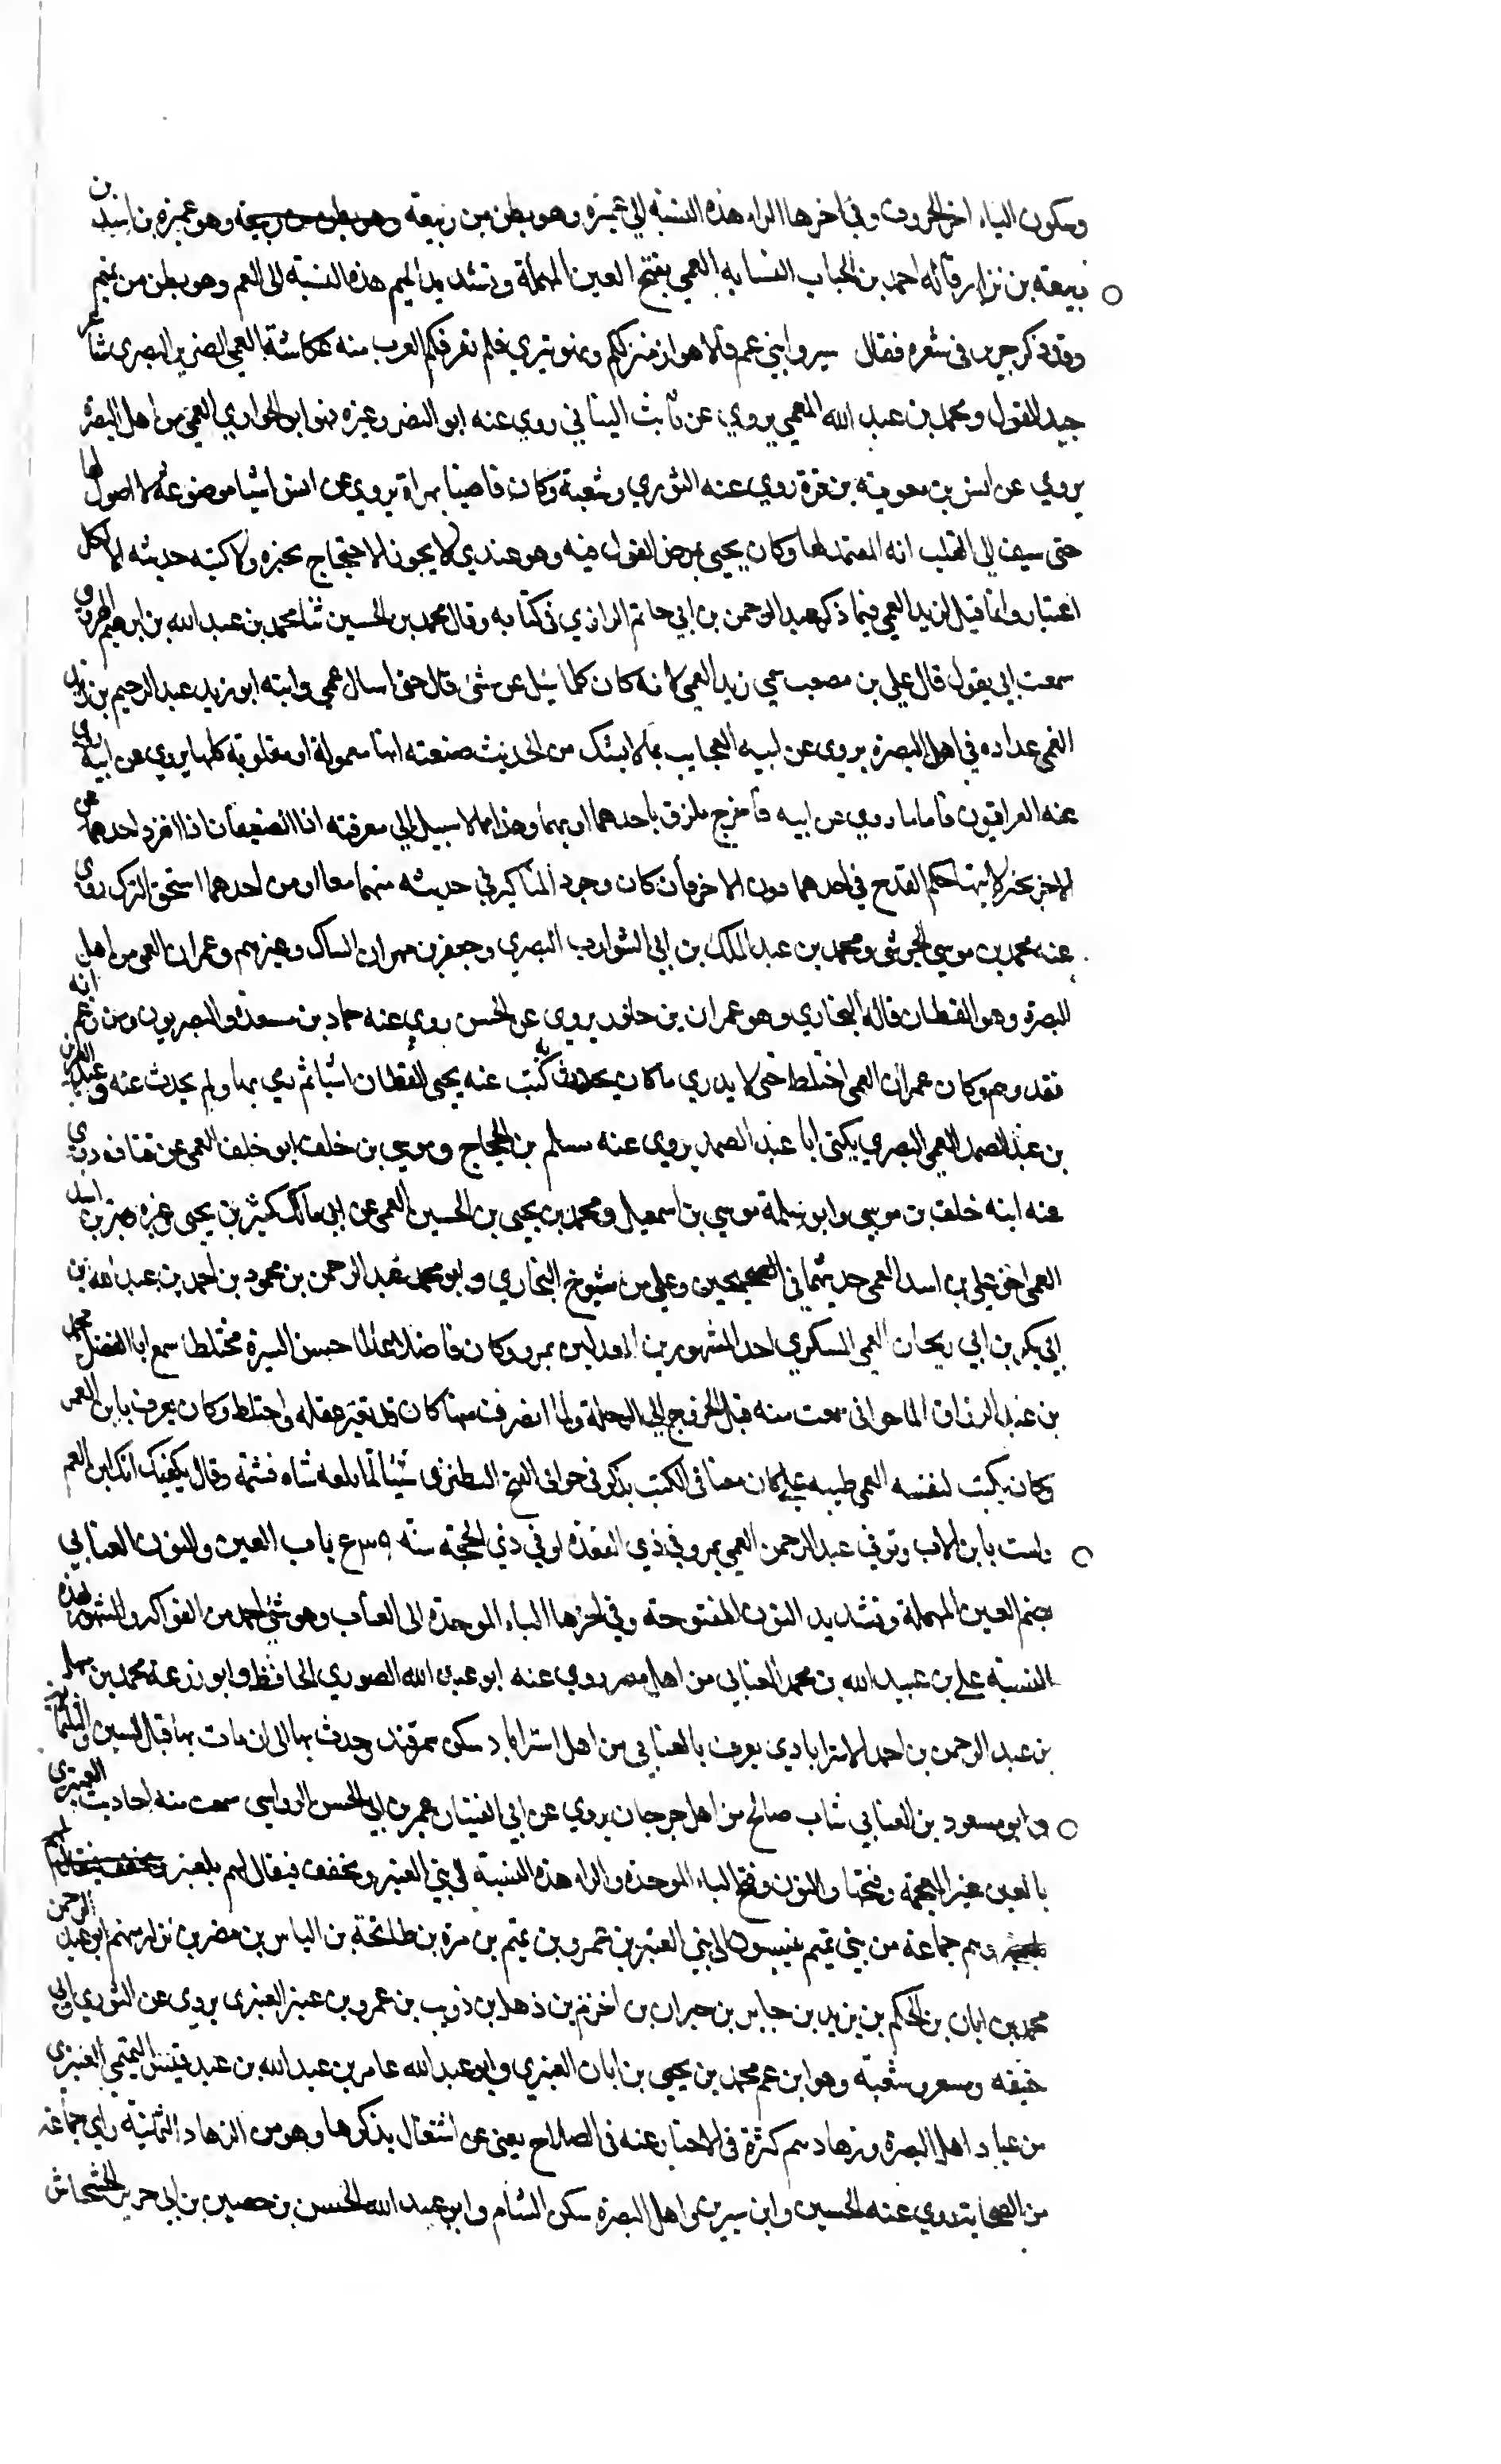 وسكون الياء اخر الحروف وفي اخرها الراء هذه النسبة الي عميرة وهو بطن من ربيعة وهو بطن من ربيعة وهو عميرة بن اسد بن
ربيعة بن نزار قاله احمد بن الحباب النسابه العمي بفتح العين المهملة وتشديد الميم هذه النسبة الى العم وهو بطن من تميم
وقد ذكر جرير في شعره فقال سيروا بني عم فالاهواز منزلكم ونهر تيري فلم تعرفكم العرب منه عكاشة العمي الضرير البصري شاعر
جيد القول ومحمد بن عبد الله العمي يروي عن ثابت البناني روي عنه ابو النضر وغيره وابو الحواري العمي من اهل البصرة
يروي عن انس بن معوية بن قرة روي عنه الثوري وشعبة وكان قاضيا بهراة يروي عن انس اشيا موضوعة لا اصول لها
حتى سبق الي القلب انه المتعمد لها وكان يحيى يمرض القول فيه وهو عندي لا يجوز الاحتجاج بخبره ولا كتبه حديثه الا لكل
اعتبار وانما قيل لزيد العمي فيما ذكر عبد الرحمن بن ابي حاتم الرازي في كتابه وقال محمد بن الحسين ثنا محمد بن عبد الله بن ابرهيم الهروي
سمعت ابي يقول قال علي بن مصعب سمي زيد العمي لانه كان كلما سئل عن شئ قال حتى اسال عمي وابنه ابو زيد عبد الرحيم بن زيد
العمي عداده في اهل البصرة يروي عن ابيه العجايب مما لا يشك من الحديث صنعته انها معمولة او مقلوبة كلها يروي عن ابيه روى
عنه العراقيون فاما ما روي عن ابيه فالجرح ملزق باحدهما او بهما وهذا مما لا سبيل الي معرفته اذ الضعيفان اذا انفرد احدهما عن
الاخر بخبر لا يتها حكم القدح في احدهما دون الاخر فان كان وجود المناكير في حديثه منهما معا او من احدهما استحق الترك روى
عنه محمد بن موسي الحرشي ومحمد بن عبد الملك بن ابي الشوارب البصري وجعفر بن مهران السباك وغيرهم وعمران العمي من اهل
البصرة وهو القطان قاله البخاري وهو عمران بن داور يروي عن الحسن روي عنه حماد بن مسعدة والبصريون ومن زعم انه
فقد وهم وكان عمران العمي اختلط حتى لا يدري ما كان يحدث به كتب عنه يحيى القطان اشيا ثم رمي بها ولم يحدث عنه وعبد العزيز
بن عبد الصمد العمي البصري يكنى ابا عبد الصمد يروي عنه مسلم بن الحجاج وموسي بن خلف ابو خلف العمي عن قتادة روى
عنه ابنه خلف بن موسي وابو سلمة موسي بن اسمعيل ومحمد بن يحيى بن الحسين العمي عن ابي مالك كثير بن يحيى وغيره وبهز بن اسد
العمي اخو معلي بن اسد العمي حديثهما في الصحيحين وعلي من شيوخ البخاري وابو محمد عبد الرحمن بن محمود بن احمد بن عبد الله بن
ابي بكر بن ابي ريحان العمي السكري احد المشهورين المعدلين بمرو وكان فاضلا عالما حسن السيرة مختلطا سمع ابا الفضل محمد
بن عبد الرزاق الماخواني سمعت منه قبل الخروج الي الرحلة ولما انصرفت منها كان قد تغير عقله واختلط وكان يعرف بابن العم
وكان يكتب لنفسه العمي فانه كان معنا في الكتب يذكر شيئا فشتمه وقال يكفيك انك ابن العم
ولست بابن الاب وتوفي عبد الرحمن العمي بمرو في ذي القعدة او في ذي الحجة سنة ٥٣٩ باب العين والنون العنابي
بضم العين المهملة وتشديد النون المفتوحة وفي اخرها الباء الموحدة الى العناب وهو شئ احمر من الفواكه والمشهور بهذه
النسبة علي بن عبيد الله بن محمد العنابي من اهل مصر روي عنه ابو عبد الله الصوري الحافظ وابو زرعة محمد بن سهل
بن عبد الرحمن بن احمد الاستراباذي يعرف بالعنابي من اهل استراباد سكن سمرقند وحدث بها الى ان مات بها قبل الستين والثلثمائة
وابو مسعود بن العنابي شاب صالح من اهل جرجان يروي عن ابي الفتيان عمر بن ابي الحسن الرواسي سمعت منه احاديث العنبري
بالعين غير المعجمة وفتحها والنون وفتح الباء الموحدة والراء هذه النسبة الى بني العنبر ويخفف فيقال لهم بلعنبر ويخفف فيقال لهم
بلعنبر وهم جماعة من بني تميم ينسبون الى بني العنبر بن عمرو بن تميم بن مرة بن طابخة بن الياس بن مضر بن نزار منهم ابو عبد الرحمن
محمد بن ابان بن الحكم بن يزيد بن جابر بن حبران بن اخرم بن ذهل بن ذويب بن عمرو بن عنبر العنبري يروي عن الثوري وابي
حنيفه ومسعر وشعبة وهو ابن عم محمد بن يحيى بن ابان العنبري وابو عبد الله عامر بن عبد الله بن عبد قيس التميمي العنبري
من عباد اهل البصرة وزهادهم كثرة في الاخبار عنه في الصلاح يغني عن اشتغال بذكرها وهو من الزهاد الثمانية راي جماعة
من الصحابة روي عنه الحسين وابن سيرين واهل البصرة سكن الشام وابو عبد الله الحسن بن حصين بن ابي حر بن الخشخاش